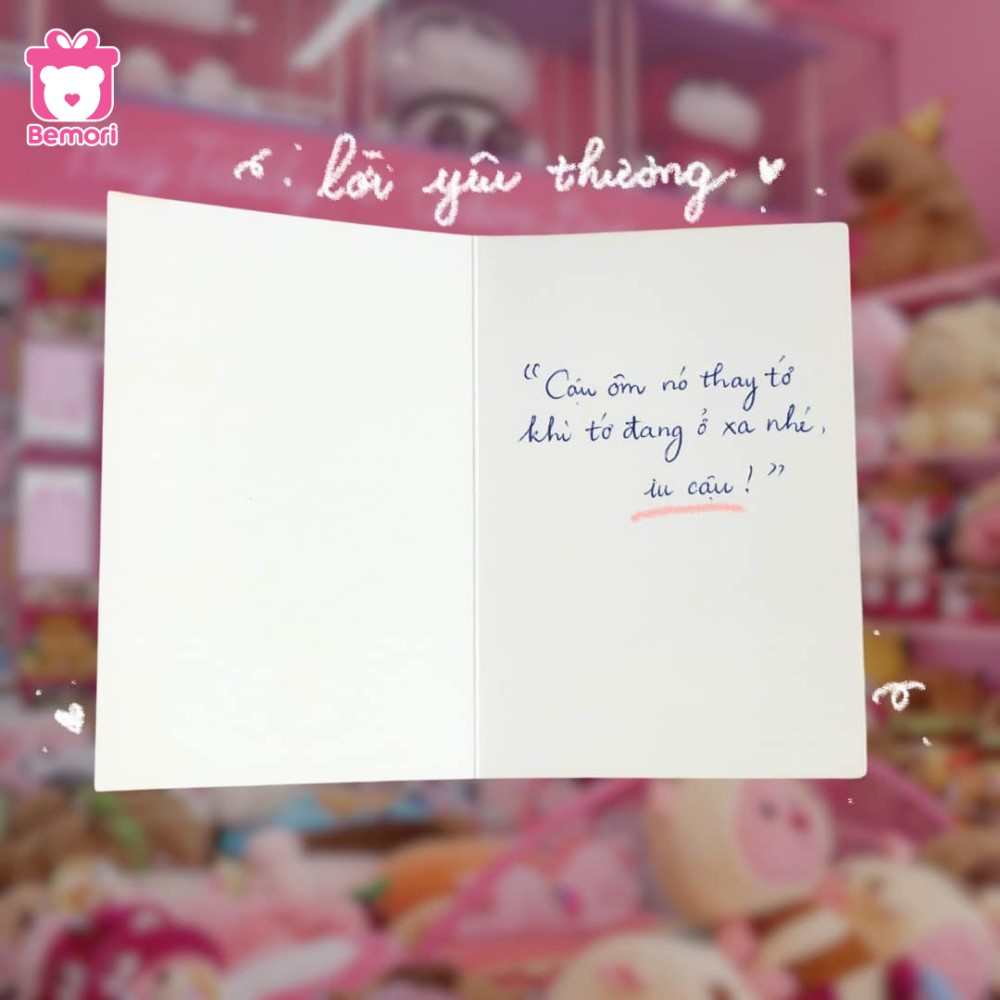 Bemori
lời yêu thương
“Cậu ôm nó thay tớ
khi tớ đang ở xa nhé,
iu cậu!”